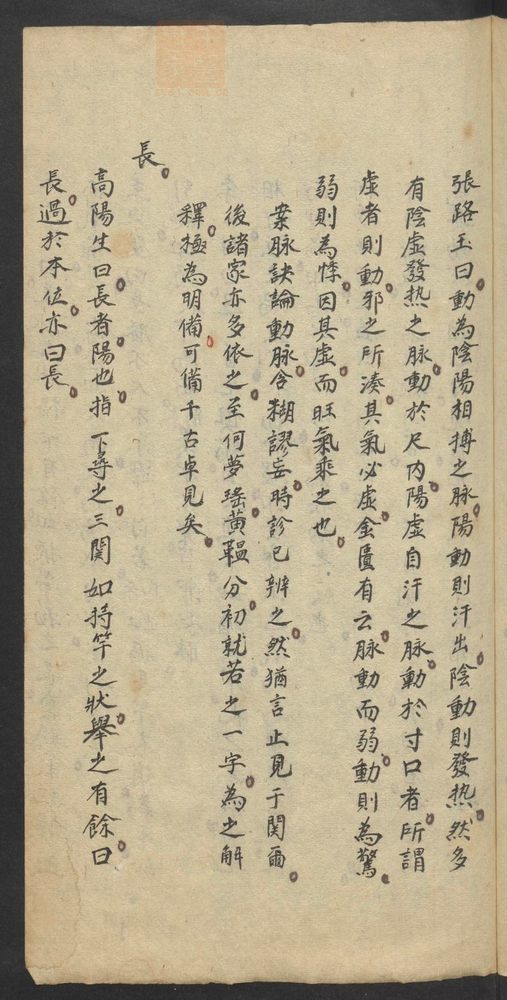 張路玉曰動為陰陽相搏之脉陽動則汗出陰動則發热然多
有陰虛發热之脉動於尺内陽虛自汗之脉動於寸口者所謂
虛者則動邪之所湊其氣必虛金匱有云脉動而弱動則為驚
弱則為悸因其虛而旺氣乘之也
案脉訣論動脉含糊謬妄時診已辨之然猶言止見于関爾
後諸家亦多依之至何夢瑤黃韞分初就若之一字為之解
釋極為明備可備千古卓見矣
長
高陽生曰長者陽也指下尋之三関如持竿之狀舉之有餘曰
長過於本位亦曰長